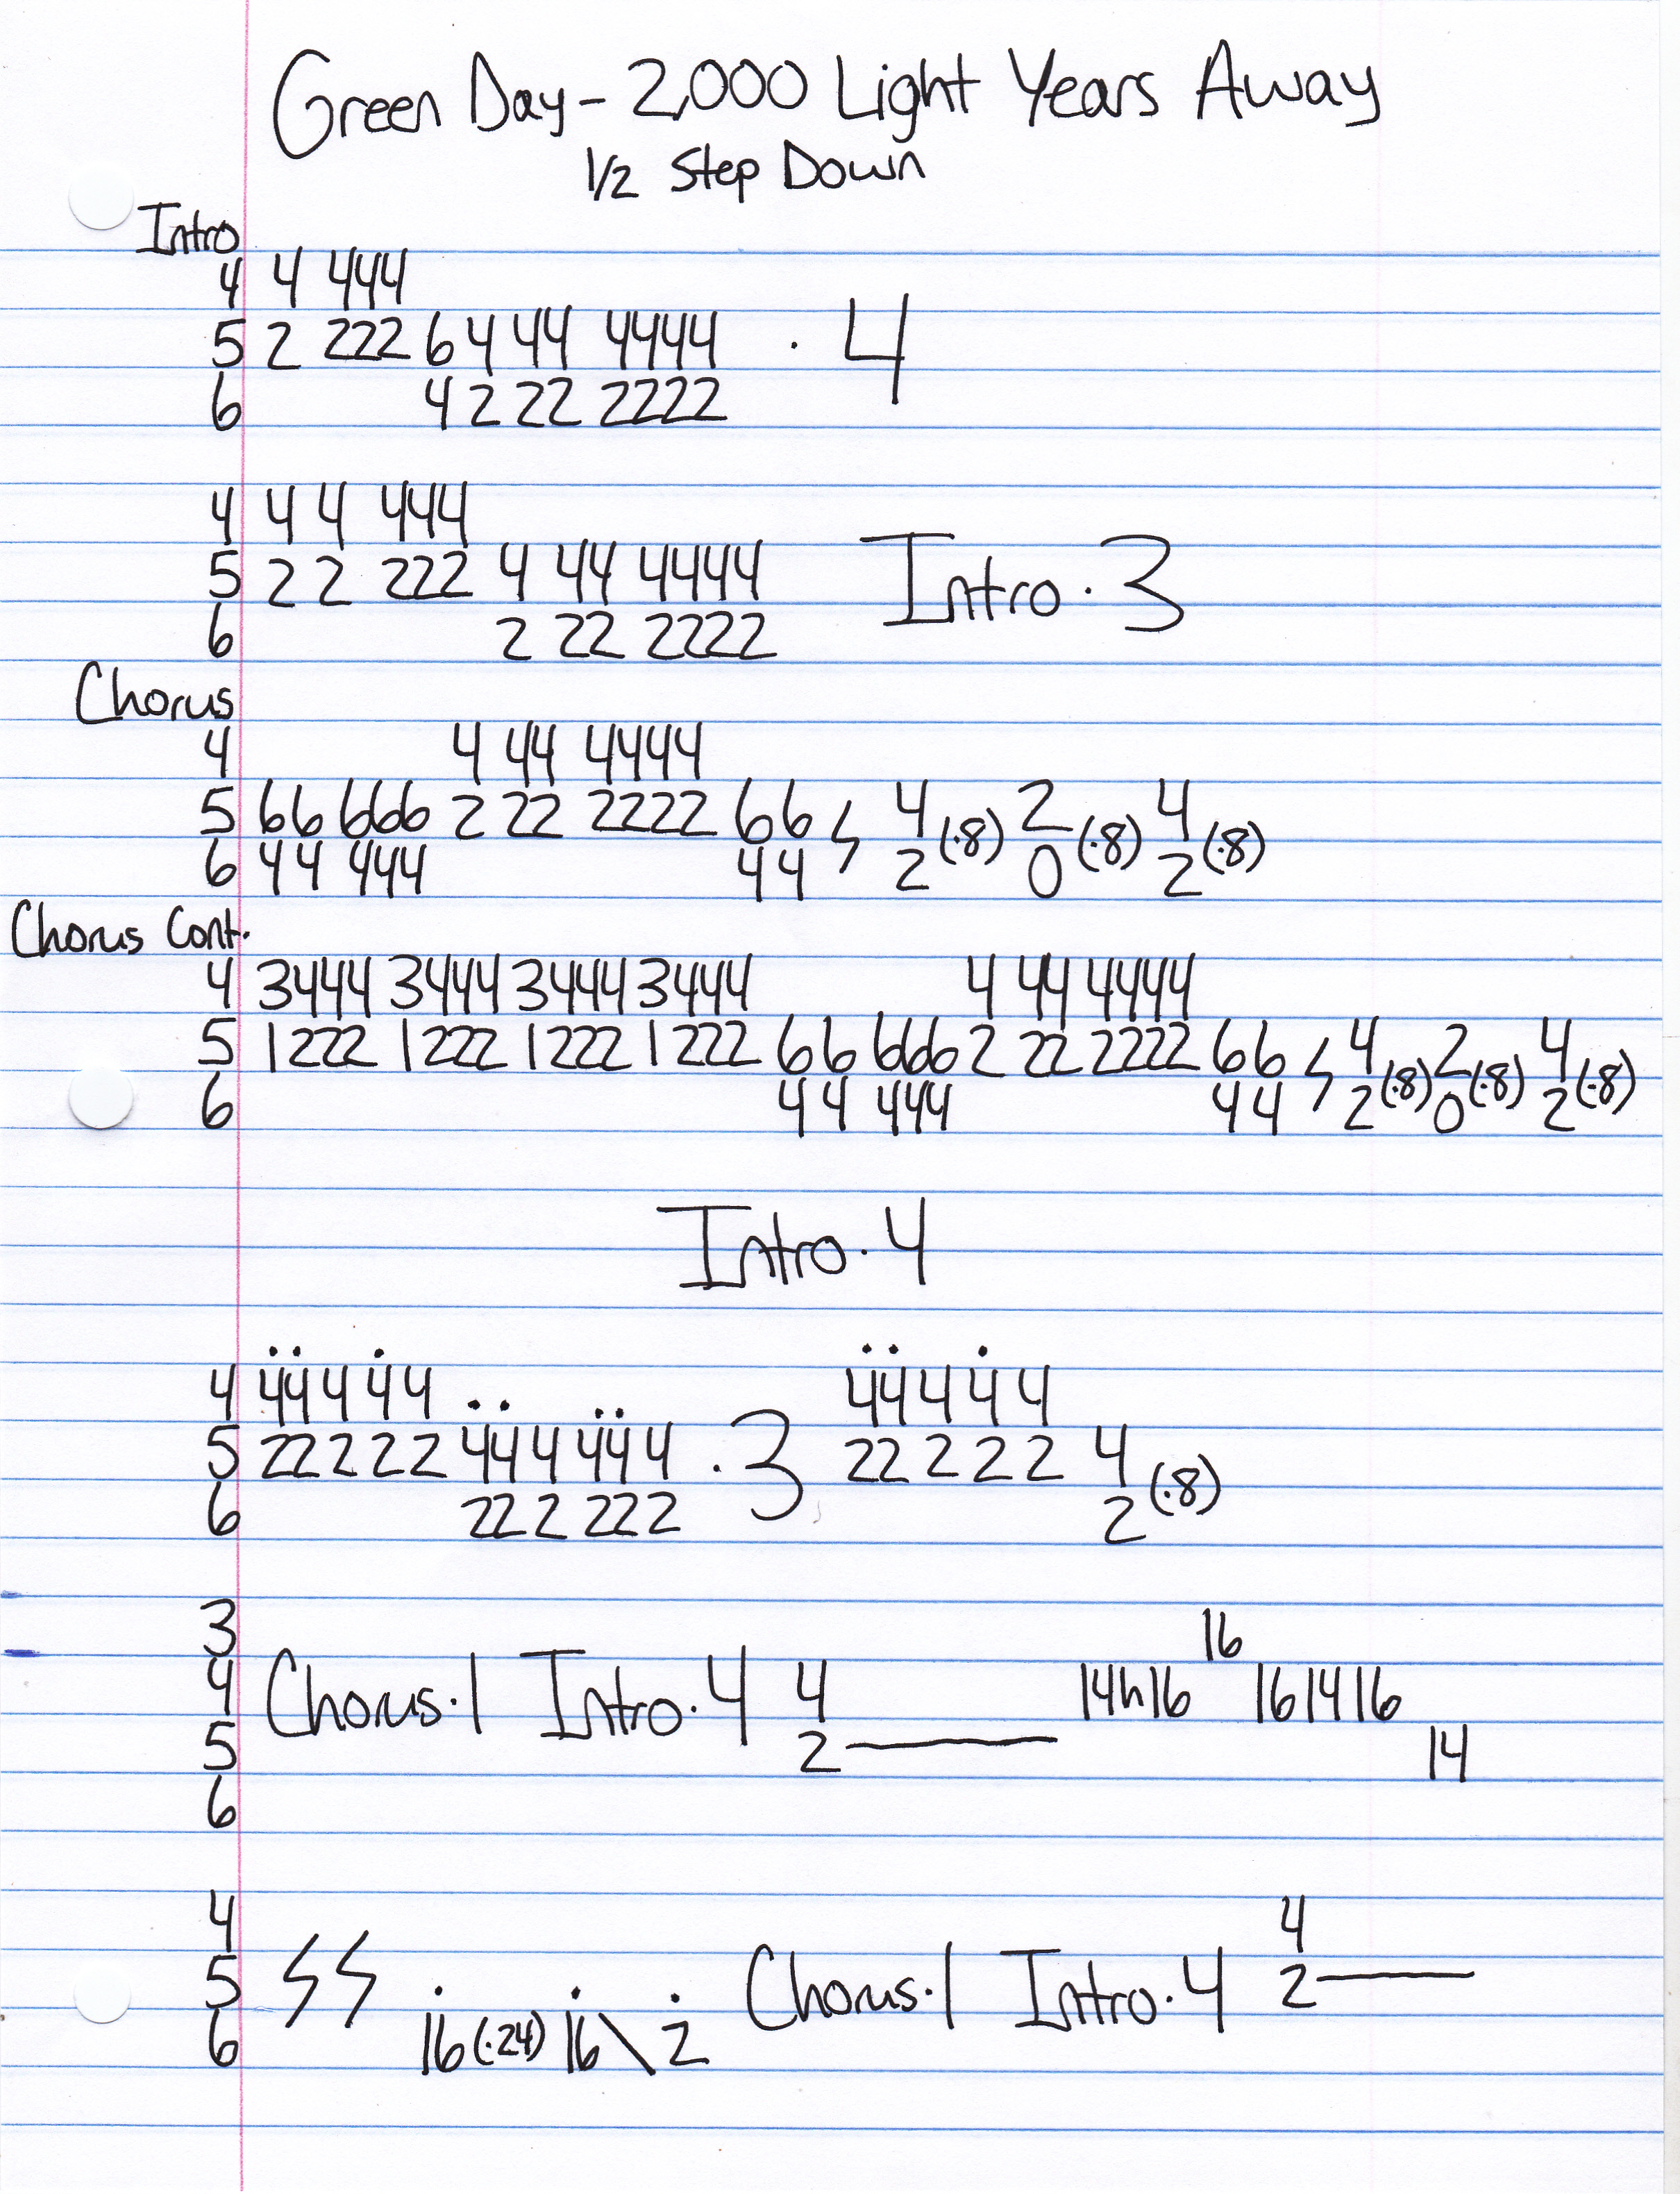 Green Day - 2,000 Light Years Away
1/2 Step Down
Intro
4 4 444
5 2 222 6 4 44 4444 · 4
6 4 2 22 2222
4 4 4 444
5 2 2 222 4 44 4444 Intro · 3
6 2 22 2222
Chorus
4 4 44 4444
5 66 666 2 22 2222 66 ϟ 4 (·8) 2 (·8) 4 (·8)
6 44 444 44 2 0 2
Chorus Cont.
4 3444 3444 3444 3444 4 44 4444
5 1222 1222 1222 1222 66 666 2 22 2222 66 ϟ 4 (·8) 2 (·8) 4 (·8)
6 44 444 44 2 0 2
Intro · 4
4 44 4 4 4 44 4 4 4
5 22 2 2 2 44 4 44 4 · 3 22 2 2 2 4 (·8)
6 22 2 22 2 2
3 16
4 Chorus · 1 Intro · 4 4 14h16 16 14 16
5 2 14
6
4 4
5 ϟ ϟ Chorus · 1 Intro · 4 2
6 16 (·24) 16 \ 2